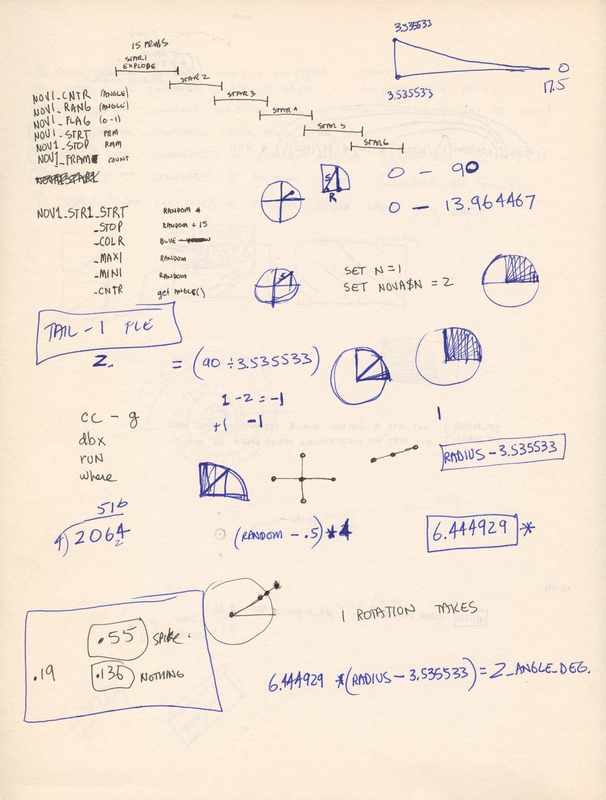 3.535533
15 FRMS
STAR1
EXPLODE
STAR 2
STAR 3
STAR 4
STAR 5
STAR 6
0
17.5
3.535533
NOV1_CNTR (ANGLE)
NOV1_RANG (ANGLE)
NOV1_FLAG (0-1)
NOV1_STRT FRM
NOV1_STOP
NOV1_FRAME COUNT
0 - 90
R
0 - 13.964467
NOV1_STR1_STRT RANDOM #
_STOP RANDOM + 15
_COLR BLUE
_MAX1 RANDOM
_MINI RANDOM
_CNTR get ANGLE()
SET N=1
SET NOVA$N = 2
TAIL -1 FLE
Z = (90 ÷ 3.535533)
1 - 2 = -1
+1 -1
1
cc -g
dbx
run
where
RADIUS - 3.535533
516
4)2064
2
(RANDOM - .5) * 4
6.444929 *
.55 SPIKE.
.19
.136 NOTHING
1 ROTATION TAKES
6.444929 * (RADIUS - 3.535533) = Z_ANGLE_DEG.